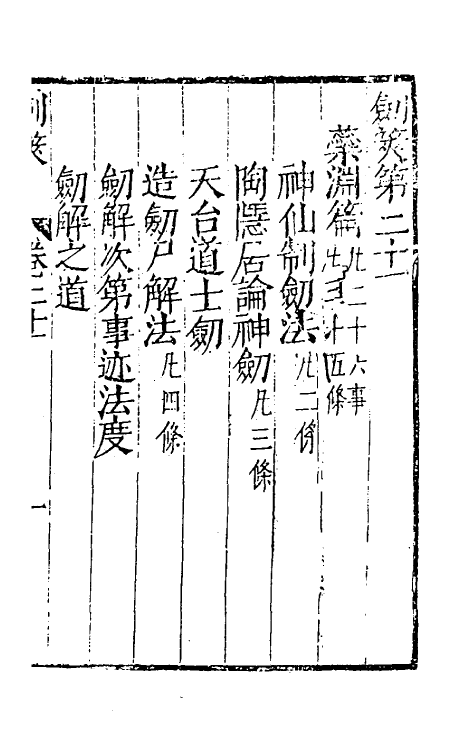 劍筴第二十
藥淵篇凡二十六事
十五條
神仙制劒法凡二條
陶隱居論神劒凡三條
天台道士劒
造劒尸解法凡四條
劒解次第事迹法度
劒解之道
劍筴 卷二十 一